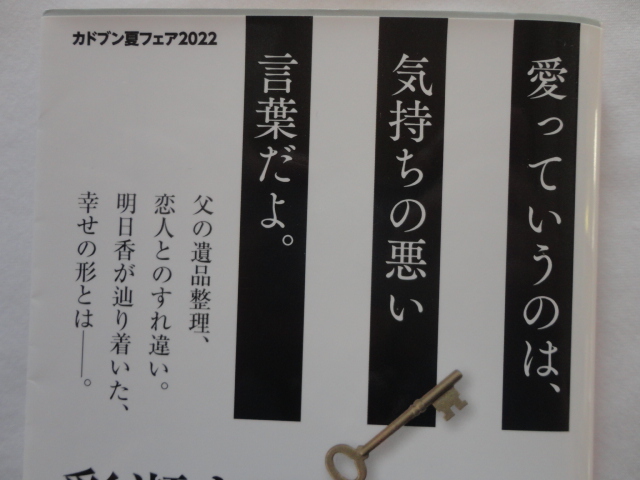 カドブン夏フェア2022
愛っていうのは、
気持ちの悪い
言葉だよ。
父の遺品整理、
恋人とのすれ違い。
明日香が辿り着いた、
幸せの形とは――。